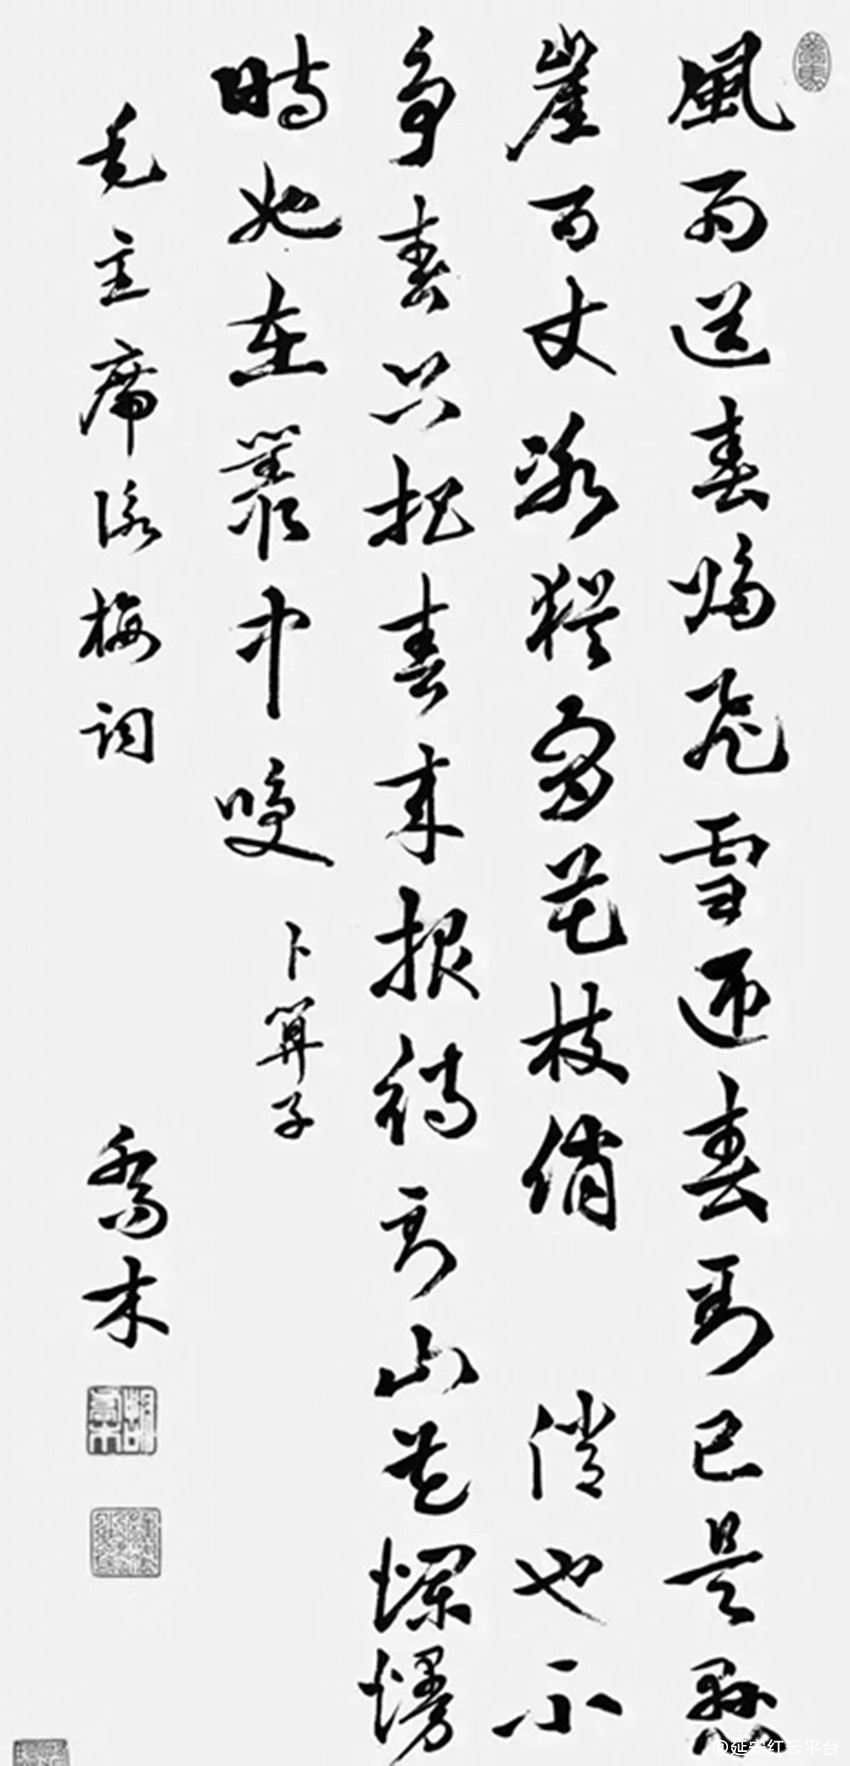 風雨送春歸飛雪迎春到已是懸
崖百丈冰猶有花枝俏 俏也不
爭春只把春來報待到山花爛熳
時她在叢中咲 卜算子
毛主席詠梅詞 喬木
@延安红云平台